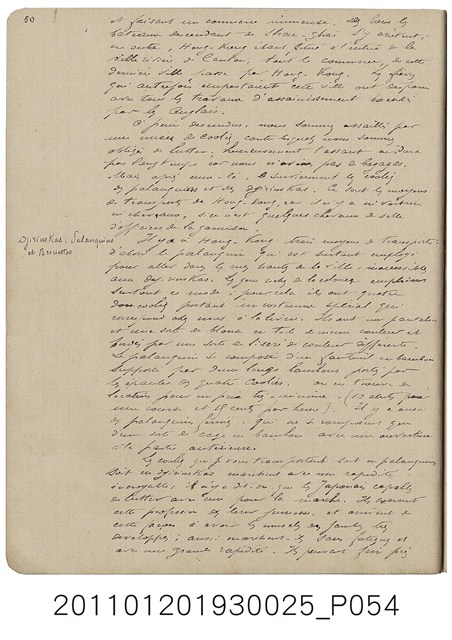 50
et faisant un commerce immense. Tous les
bateaux descendant de Shang-haï s'y arrêtent;
en outre, Hong-Kong étant situé à l'entrée de la
rivière de Canton, tout le commerce de cette
dernière ville passe par Hong-Kong. Les fièvres
qui autrefois empestaient cette ville ont disparu
avec tous les travaux d'assainissement exécutés
par les Anglais.
A peine descendus, nous sommes assaillis par
une nuée de coolies contre lesquels nous sommes
obligés de lutter. Heureusement l'assaut ne dure
pas longtemps car nous n'avons pas de bagages.
Mais après ceux-là, surviennent les coolies
des palanquins et des djirinskas. Ce sont les moyens
de transports de Hong-Kong, car il n'y a ni voitures
ni chevaux, si ce n'est quelques chevaux de selle
d'officiers de la garnison.
Djirinskas, Palanquins
et Brouettes
Il y a à Hong-Kong trois moyens de transports:
d'abord le palanquin qui est surtout employé
pour aller dans les hauts de la ville inaccessibles
aux djirinskas. Les gens riches de la colonie emploient
surtout ce mode; pour cela ils ont quatre
coolies portant un costume spécial qui
correspond chez nous à la livrée. Ils ont un pantalon
et une sorte de blouse en toile de même couleur et
bordés par une sorte de liseré de couleur différente.
Le palanquin se compose d'un fauteuil en bambou
supporté par deux longs bambous portés par
les épaules des quatre coolies. On en trouve en
location pour un prix très minime. (10 cents pour
une course et cents par heure). Il y a aussi
des palanquins fermés qui ne se composent que
d'une sorte de cage en bambou avec une ouverture
à la partie antérieure.
Les coolies qui vous transportent soit en palanquins
soit en djirinskas marchent avec une rapidité
incroyable; il n'y a dit-on que les Japonais capables
de lutter avec eux pour la marche. Ils exercent
cette profession dès leur jeunesse et arrivent de
cette façon à avoir les muscles des jambes très
développés; aussi marchent-ils sans fatigue et
avec une grande rapidité. Ils peuvent faire près
201101201930025_P054